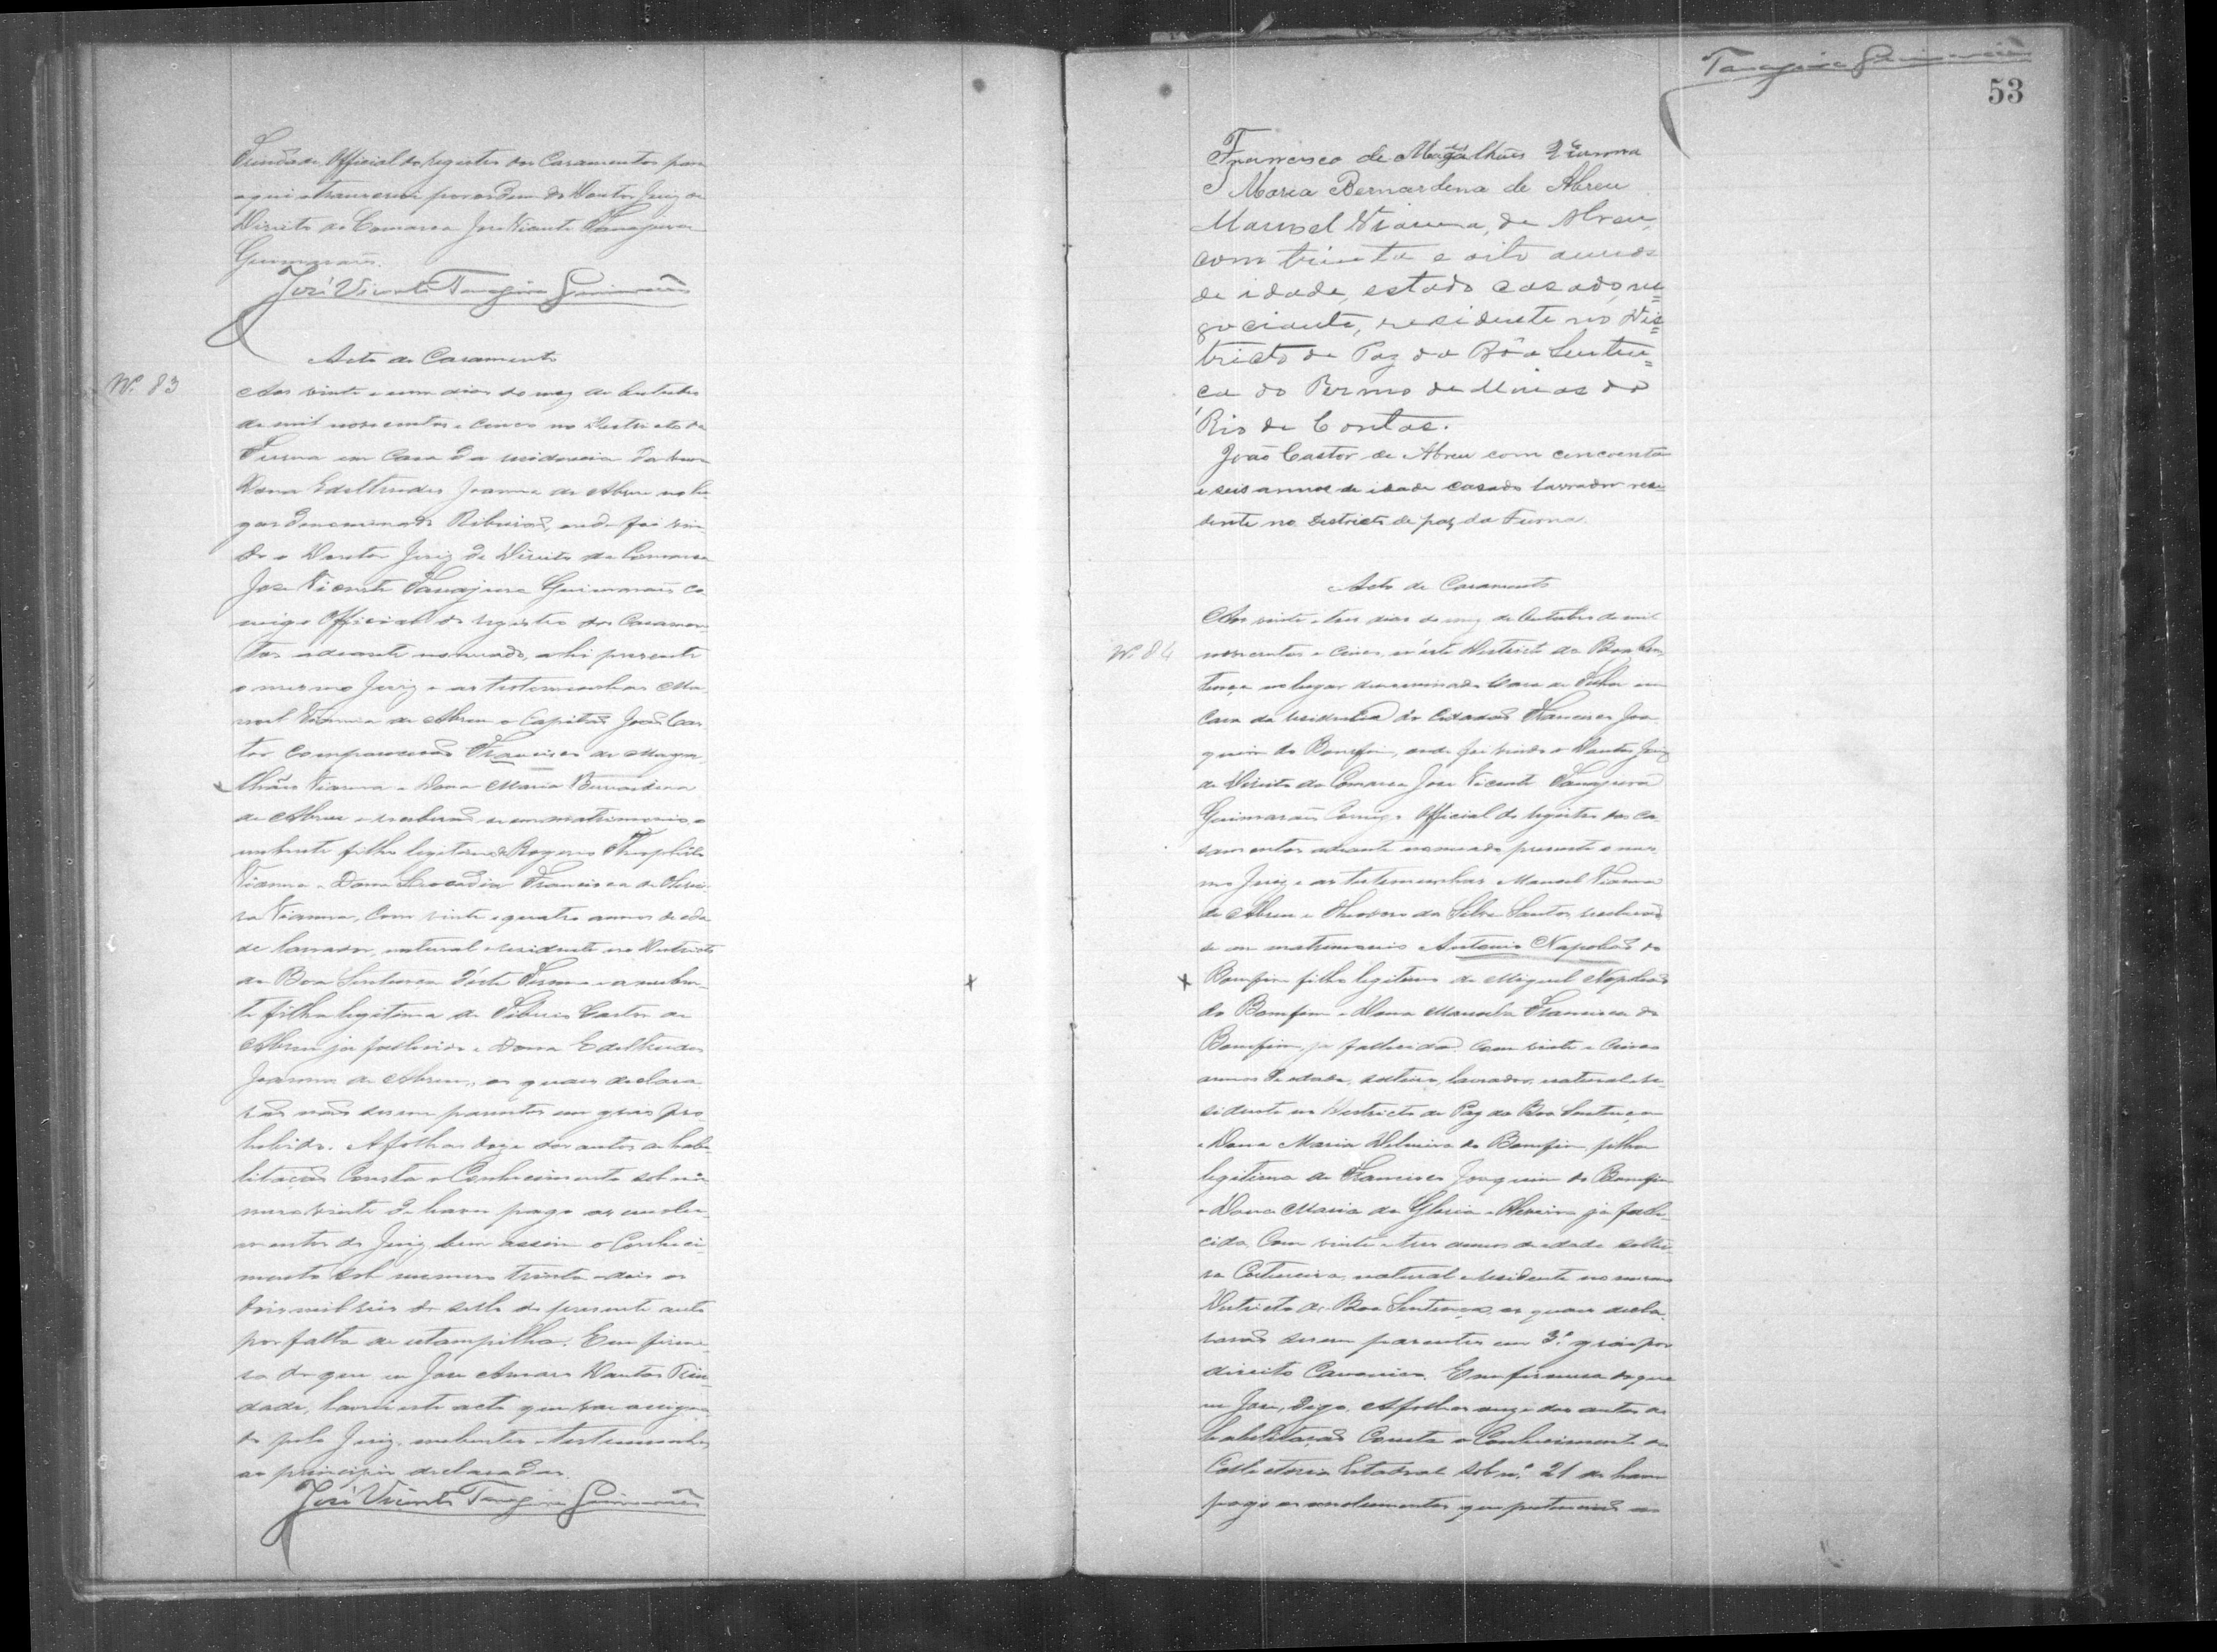 Trindade, Official do registro dos Casamentos para
aqui transcrevi por ordem do Doutor Juiz de
Direito da Comarca Jose Vicente Tanajura
Guimarães.
José Vicente Tanajura Guimarães
Acto de Casamento
Nº 83
Aos vinte e um dias do mez de Outubro
de mil novecentos e cinco no Districto da
Furna em Casa da residencia da
Dona Edeltrudes Joanna de Abreu no lu-
gar denominado Ribeirão, onde foi vin-
do o Doutor Juiz de Direito da Comarca
Jose Vicente Tanajura Guimarães co-
migo Official do registro dos Casamen-
tos adeante nomeado, ahi presente
o mesmo Juiz e as testemunhas Ma-
noel Vianna de Abreu e Capitão João Cas-
tor comparecerão Francisco de Maga-
lhães Vianna e Dona Maria Bernardina
de Abreu e receberão se em matrimonio, o
nubente filho legitimo de Rogerio Theophilo
Vianna e Dona Leocadia Francisca de Olivei-
ra Vianna, com vinte e quatro annos de ida-
de lavrador, natural e residente no Districto
da Boa Sentença d'este Termo e a nuben-
te filha legitima de Tiberio Castor de
Abreu já fallecido e Dona Edeltrudes
Joanna de Abreu, os quaes declara-
rão não serem parentes em gráo pro-
hibido. A folhas doze dos autos de habi-
litação Consta o Conhecimento sob nu-
mero vinte de haver pago os emolu-
mentos do Juiz, bem assim o Conheci-
mento sob numero trinta e dois os
dois mil reis do sello do presente auto
por falta de estampilha. Em firme-
sa do que eu Jose Amaro Dantas Trin-
dade, lavrei este acto que vae assigna-
do pelo Juiz, nubentes e testemunhas
ao principio declaradas.
José Vicente Tanajura Guimarães
Tanajura Guimarães
53
Francisco de Magalhães Vianna
Maria Bernardina de Abreu
Manoel Vianna, de Abreu,
com trinta e oito annos
de idade, estado casado, ne=
gociante, residente no Dis=
tricto de Paz da Bôa Senten=
ça do Termo de Minas do
Rio de Contas.
João Castor de Abreu com cincoenta
e seis annos de idade casado lavrador resi-
dente no Districto de paz da Furna.
Acto de Casamento
Nº 84
Aos vinte e tres dias do mez de Outubro de mil
novecentos e cinco, n'este Districto da Boa Sen-
tença no lugar denominado Casa de Telha em
Casa da residencia do Cidadão Francisco Joa-
quim do Bomfim, onde foi vindo o Doutor Juiz
de Direito da Comarca Jose Vicente Tanajura
Guimarães Comigo Official do registro dos Ca-
samentos adeante nomeado presente o mes-
mo Juiz e as testemunhas Manoel Vianna
de Abreu e Theodoro da Silva Santos receberão
se em matrimonio Antonio Napoleão do
Bomfim filho legitimo de Miguel Napoleão
do Bomfim e Dona Manoela Francisca do
Bomfim, já fallecida. Com vinte e cinco
annos de idade, solteiro, lavrador, natural e re-
sidente no Districto de Paz da Boa Sentença
e Dona Maria do Bomfim, filha
legitima de Francisco Joaquim do Bomfim
e Dona Maria da Gloria e Oliveira já falle-
cida Com vinte e tres annos de idade soltei-
ra Costureira, natural e residente no mesmo
Districto da Boa Sentença, os quaes decla-
rarão serem parentes em 3º gráo por
direito Canonico. Em firmesa do que
eu Jose, digo, A folhas onze dos autos de
habilitação Consta o Conhecimento da
Collectoria Estadual sob nº 21 de haver
pago os emolumentos que pertencem ao